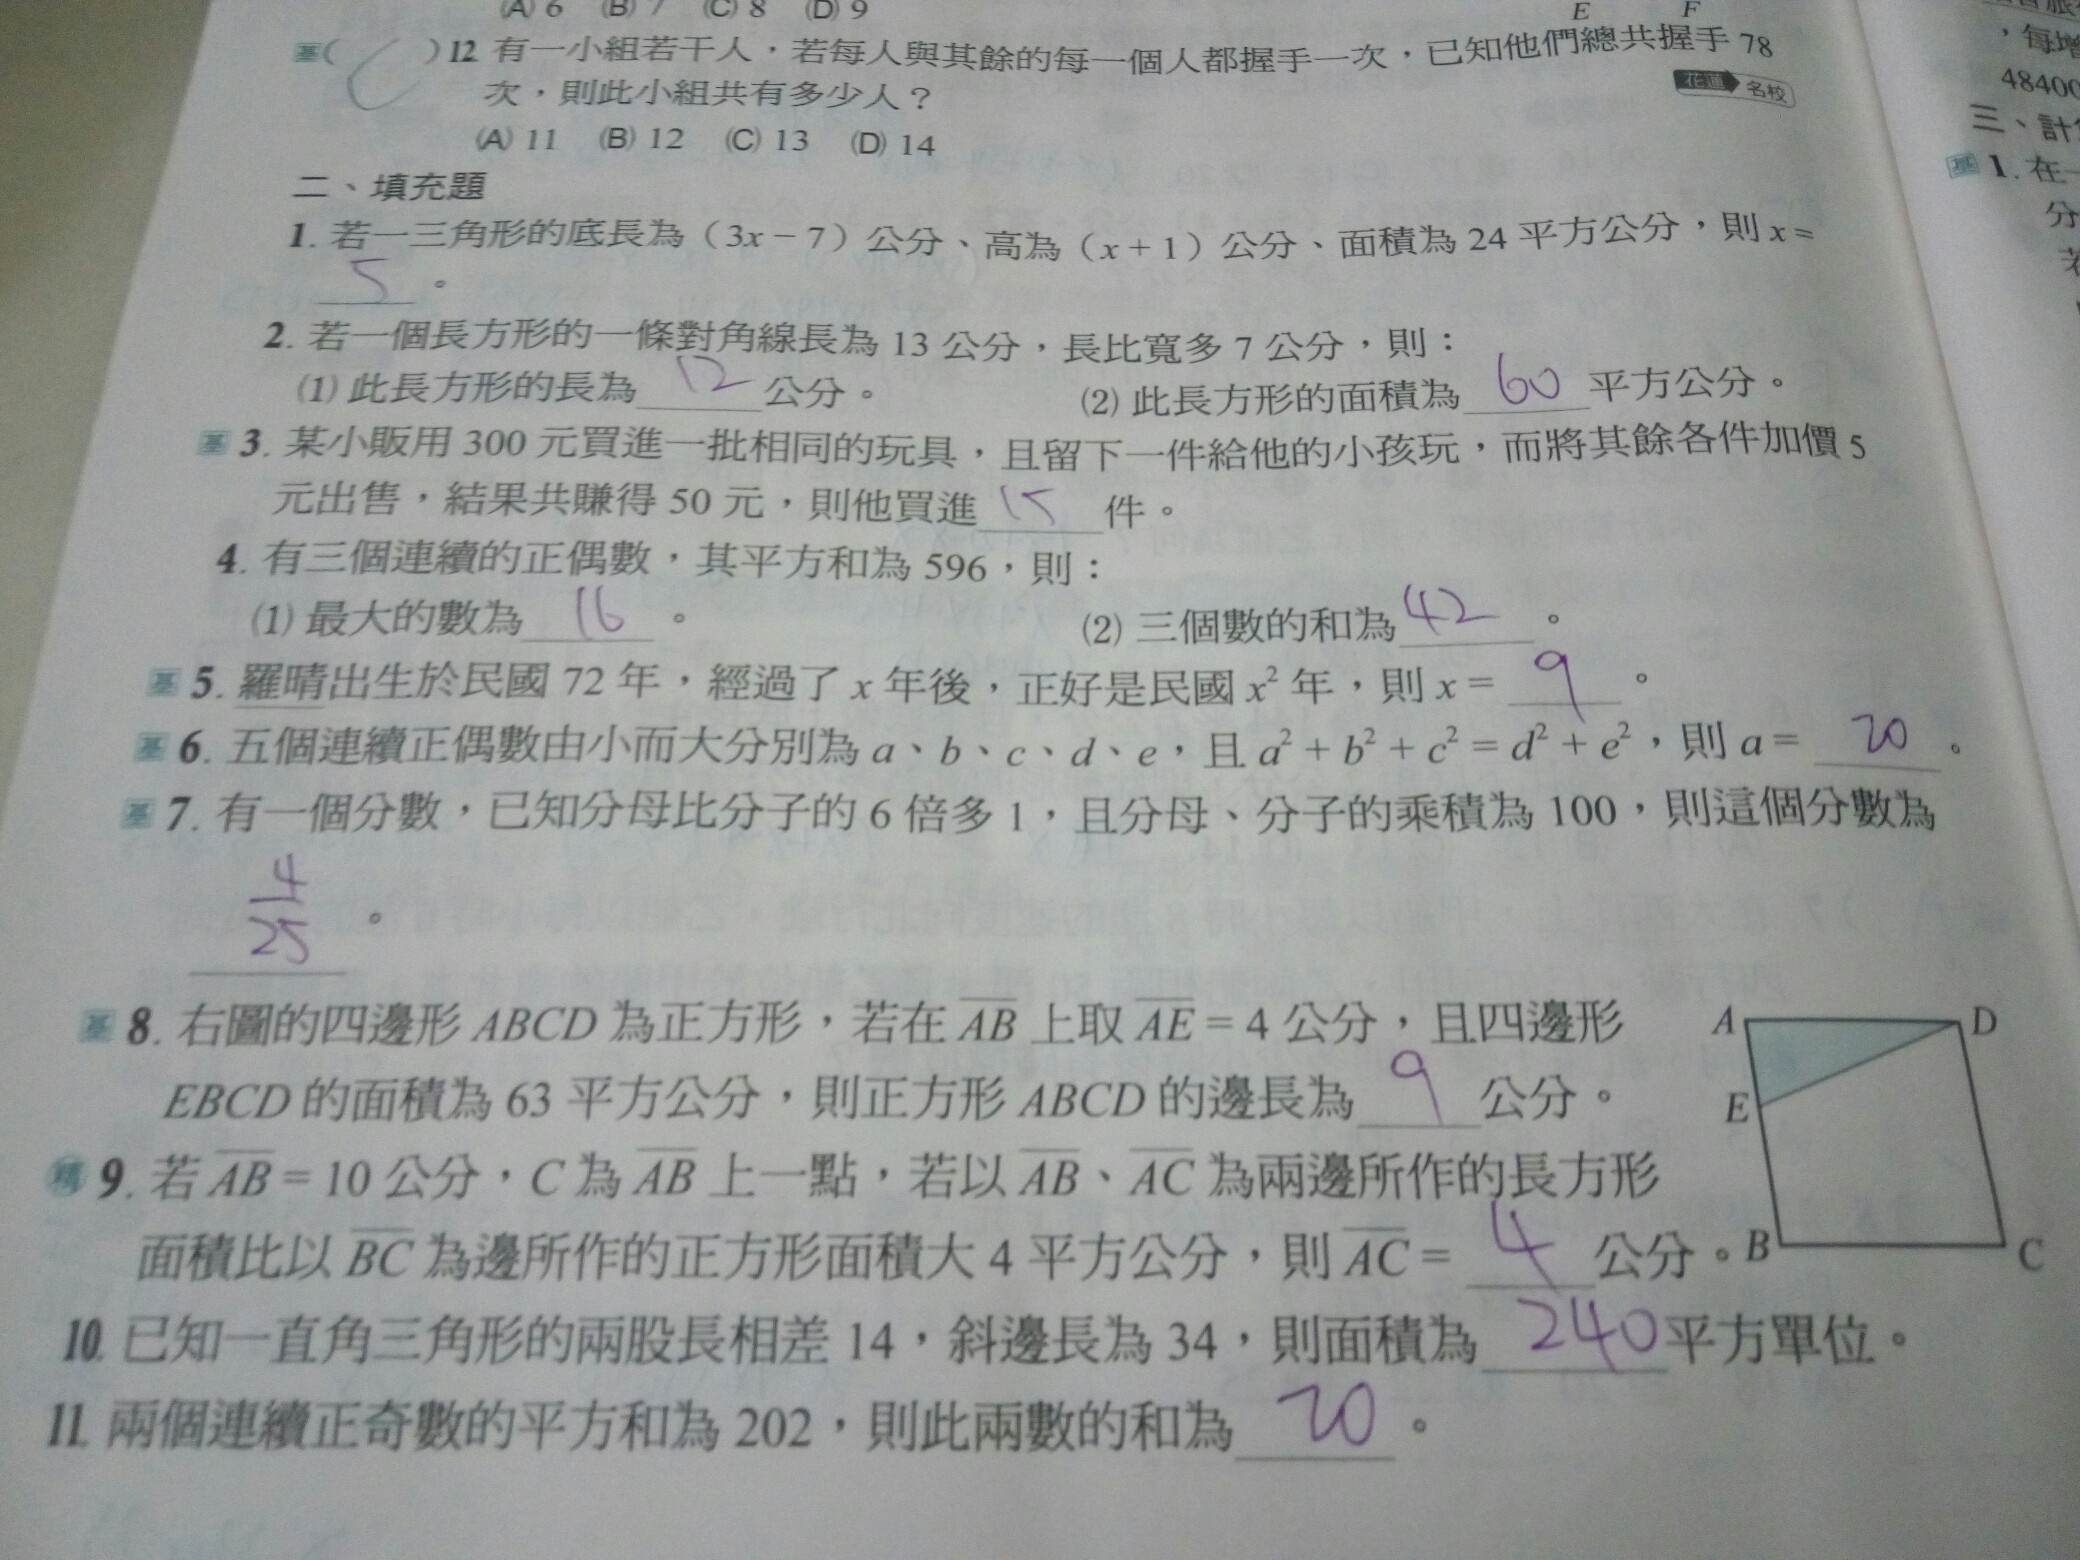 (A) 6 (B) 7 (C) 8 (D) 9
E F
基( C )12 有一小組若干人，若每人與其餘的每一個人都握手一次，已知他們總共握手 78
次，則此小組共有多少人？ 名校
(A) 11 (B) 12 (C) 13 (D) 14
二、填充題
1. 若一三角形的底長為（3x－7）公分、高為（x＋1）公分、面積為 24 平方公分，則 x＝
5 。
2. 若一個長方形的一條對角線長為 13 公分，長比寬多 7 公分，則：
(1) 此長方形的長為 12 公分。 (2) 此長方形的面積為 60 平方公分。
基 3. 某小販用 300 元買進一批相同的玩具，且留下一件給他的小孩玩，而將其餘各件加價 5
元出售，結果共賺得 50 元，則他買進 15 件。
4. 有三個連續的正偶數，其平方和為 596，則：
(1) 最大的數為 16 。 (2) 三個數的和為 42 。
基 5. 羅晴出生於民國 72 年，經過了 x 年後，正好是民國 x² 年，則 x＝ 9 。
基 6. 五個連續正偶數由小而大分別為 a、b、c、d、e，且 a²＋b²＋c²＝d²＋e²，則 a＝ 20 。
基 7. 有一個分數，已知分母比分子的 6 倍多 1，且分母、分子的乘積為 100，則這個分數為
4/25 。
基 8. 右圖的四邊形 ABCD 為正方形，若在 AB 上取 AE＝4 公分，且四邊形
EBCD 的面積為 63 平方公分，則正方形 ABCD 的邊長為 9 公分。
A D
E
B C
精 9. 若 AB＝10 公分，C 為 AB 上一點，若以 AB、AC 為兩邊所作的長方形
面積比以 BC 為邊所作的正方形面積大 4 平方公分，則 AC＝ 4 公分。
10. 已知一直角三角形的兩股長相差 14，斜邊長為 34，則面積為 240 平方單位。
11. 兩個連續正奇數的平方和為 202，則此兩數的和為 20 。
，每增
48400
三、計
基 1. 在一
分
若